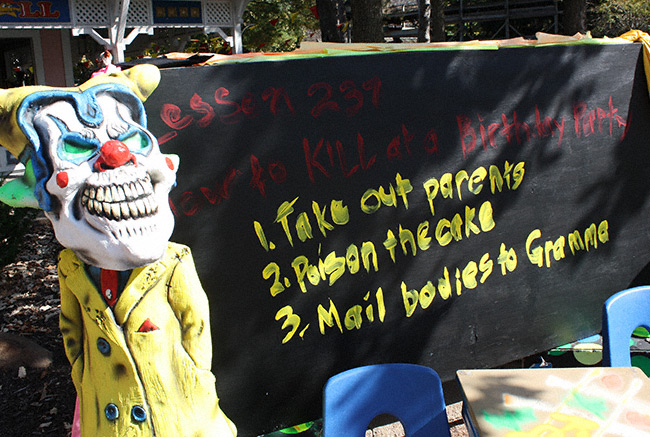 LL
Lesson 239
How to KILL at a Birthday Party
1. Take out parents
2. Poison the cake
3. Mail bodies to Gramma